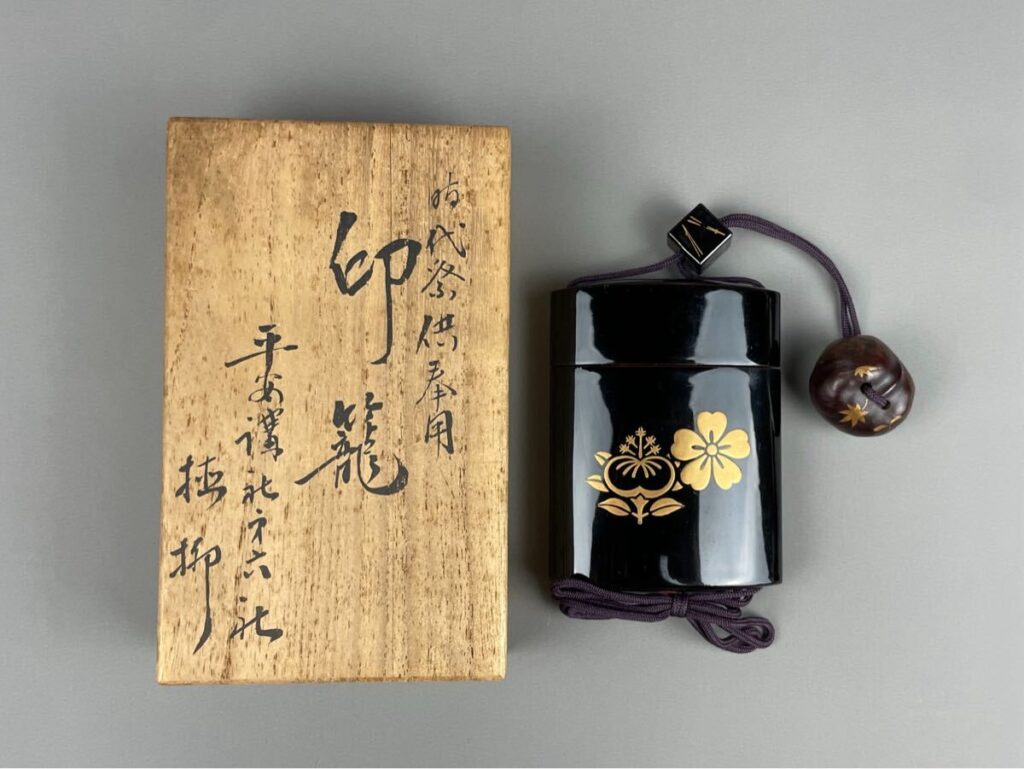 時代祭供奉用
印籠
平安講社第六社
植柳